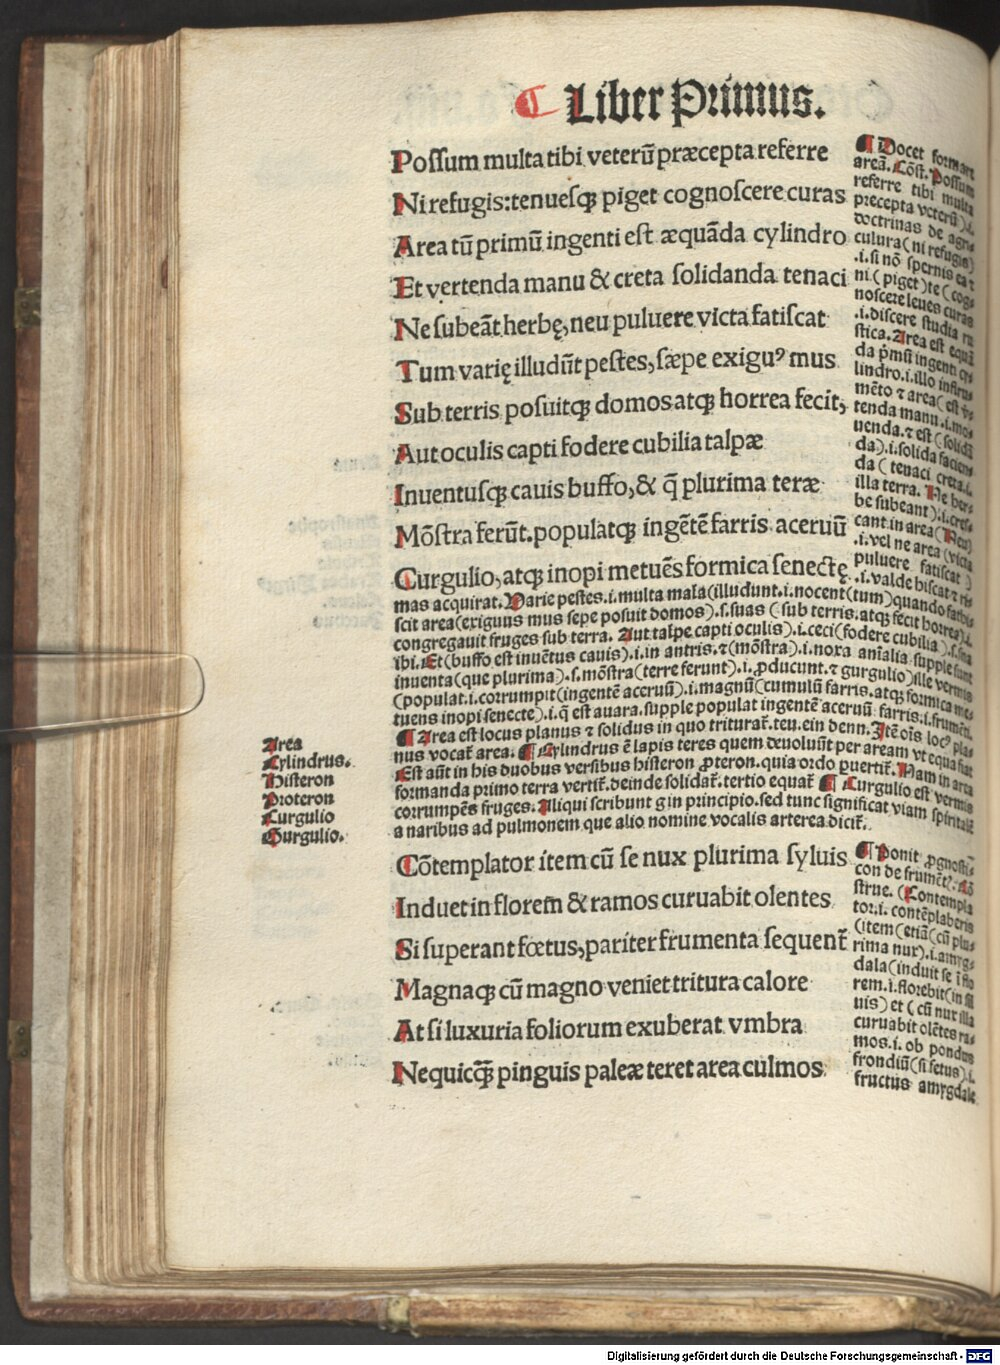 ¶ Liber Primus.
Possum multa tibi veterū præcepta referre
Ni refugis: tenuesqꝫ piget cognoscere curas
Area tū primū ingenti est æquāda cylindro
Et vertenda manu & creta solidanda tenaci
Ne subeāt herbę, neu puluere victa fatiscat
Tum varię illudūt pestes, sæpe exiguꝰ mus
Sub terris posuitqꝫ domos atqꝫ horrea fecit,
Aut oculis capti fodere cubilia talpæ
Inuentusqꝫ cauis buffo, & q̄ plurima teræ
Mōstra ferūt. populatqꝫ ingētē farris aceruū
Curgulio, atqꝫ inopi metuēs formica senectę.
¶ Docet formare
areā. Cōst. Possum
referre tibi multa
precepta veterū).i.
doctrinas de agri
cultura (ni refugis)
.i. si nō spernis ea ⁊
ni (piget) te (cog-
noscere leues curas
.i. discere studia ru
stica. Area est equā
da p̄mū ingenti cy
lindro .i. illo instru
mēto ⁊ area (est v̄-
tenda manu .i. mo
uenda. ⁊ est (solidā
da) .i. solida facien
da (tenaci creta .i.
illa terra. Ne her-
be subeant) .i. cres-
cant in area (Neu)
.i. vel ne area (victa
puluere fatiscat)
.i. valde hiscat ⁊ ri
mas acquirat. Varie pestes .i. multa mala (illudunt .i. nocent (tum) quando fathi-
scit area (exiguus mus sepe posuit domos) .s. suas (sub terris. atqꝫ fecit horrea) .i.
congregauit fruges sub terra. Aut talpe capti oculis) .i. ceci (fodere cubilia) .s. sua
ibi. Et (buffo est inuētus cauis) .i. in antris. ⁊ (mōstra) .i. noxa aīalia supple sunt
inuenta (que plurima) .s. mōstra (terre ferunt) .i. ꝓducunt. ⁊ gurgulio) ille vermis
(populat .i. corrumpit (ingentē aceruū) .i. magnū (cumulū farris. atqꝫ formica me-
tuens inopi senecte) .i. q̄ est auara. supple populat ingentē aceruū farris .i. frumēti.
¶ Area est locus planus ⁊ solidus in quo triturat̄. teu. ein denn. Itē oīs locꝰ pla-
nus vocat̄ area. ¶ Cylindrus ē lapis teres quem deuoluūt per aream vt equa fiat
Est aūt in his duobus versibus histeron ꝓteron. quia ordo puertit̄. Nam in area
formanda primo terra vertit̄. deinde solidat̄. tertio equat̄ ¶ Curgulio est vermis
corrumpēs fruges. Aliqui scribunt g in principio. sed tunc significat viam spūitalē
a naribus ad pulmonem que alio nomine vocalis arterea dicit̄.
Area
Cylindrus.
Histeron
Proteron
Curgulio
Gurgulio.
Cōtemplator item cū se nux plurima syluis
Induet in florem & ramos curuabit olentes
Si superant fœtus, pariter frumenta sequent̄
Magnaqꝫ cū magno veniet tritura calore
At si luxuria foliorum exuberat vmbra
Nequicꝗ̄ pinguis paleæ teret area culmos.
¶ Ponit ꝓgnosti-
con de frumētꝭ. Cō
strue. (Contempla
tor .i. contēplaberis
(item (etiā (cū plu-
rima nux) .i. amyg-
dala (induit se ī flo
rem .i. florebit (in sil
uis) et (cū nux illa
curuabit olētes ra-
mos .i. ob pondus
frondiū (si fetus) .i.
fructus amygdale
Digitalisierung gefördert durch die Deutsche Forschungsgemeinschaft - DFG